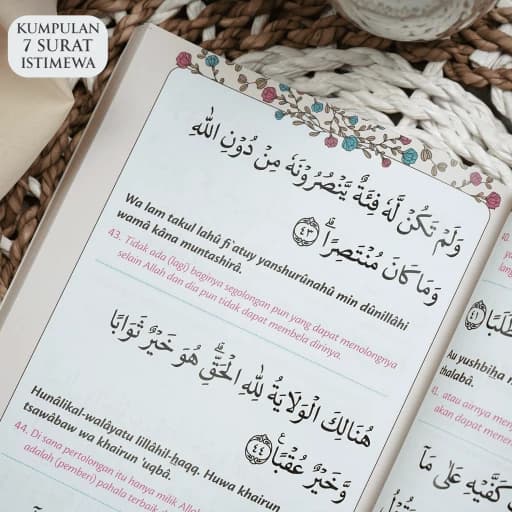 KUMPULAN
7 SURAT
ISTIMEWA
وَلَمْ تَكُنْ لَّهٗ فِئَةٌ يَّنْصُرُوْنَهٗ مِنْ دُوْنِ اللّٰهِ
وَمَا كَانَ مُنْتَصِرًاۗ ﴿٤٣﴾
Wa lam takul lahû fi'atuy yanshurûnahû min dûnillâhi
wamâ kâna muntashirâ.
43. Tidak ada (lagi) baginya segolongan pun yang dapat menolongnya
selain Allah dan dia pun tidak dapat membela dirinya.
هُنَالِكَ الْوَلَايَةُ لِلّٰهِ الْحَقِّۗ هُوَ خَيْرٌ ثَوَابًا
وَّخَيْرٌ عُقْبًا ﴿٤٤﴾
Hunâlikal-walâyatu lillâhil-haqq. Huwa khairun
tsawâbaw wa khairun 'uqbâ.
44. Di sana pertolongan itu hanya milik Allah
adalah (pemberi) pahala terbaik
طَلَبًا ﴿٤١﴾
Au yushbiha m
thalabâ.
41. atau airnya menj
akan dapat mene
كَفَّيْهِ عَلٰى مَآ